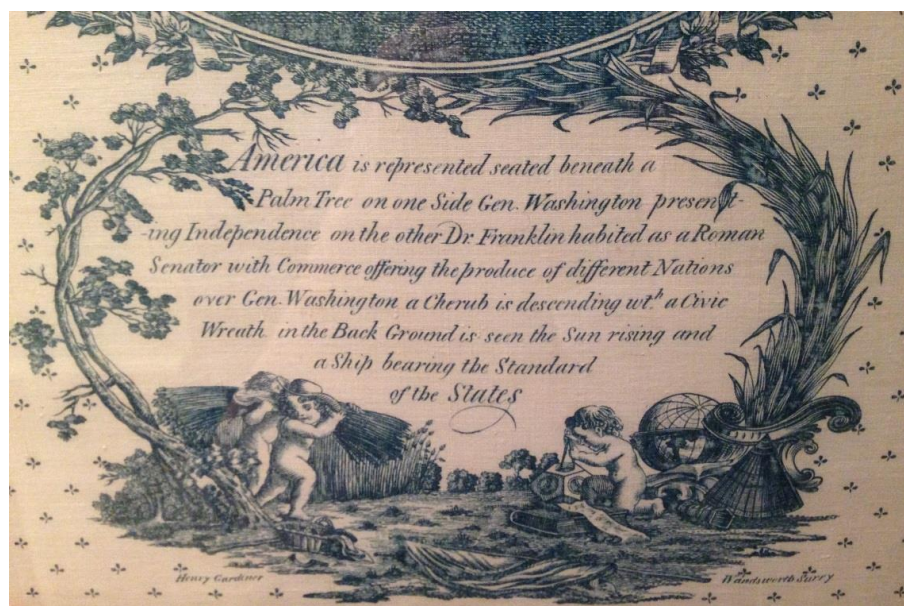 America is represented seated beneath a
Palm Tree on one Side Gen. Washington present-
-ing Independence on the other Dr. Franklin habited as a Roman
Senator with Commerce offering the produce of different Nations
over Gen. Washington a Cherub is descending wth. a Civic
Wreath in the Back Ground is seen the Sun rising and
a Ship bearing the Standard
of the States
Henry Gardiner
Wandsworth Surry